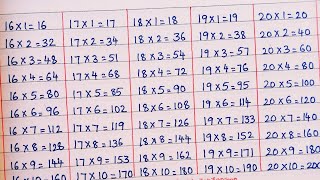 16×1=16 17×1=17 18×1=18 19×1=19 20×1=20
16×2=32 17×2=34 18×2=36 19×2=38 20×2=40
16×3=48 17×3=51 18×3=54 19×3=57 20×3=60
16×4=64 17×4=68 18×4=72 19×4=76 20×4=80
16×5=80 17×5=85 18×5=90 19×5=95 20×5=100
16×6=96 17×6=102 18×6=108 19×6=114 20×6=120
16×7=112 17×7=119 18×7=126 19×7=133 20×7=140
16×8=128 17×8=136 18×8=144 19×8=152 20×8=160
16×9=144 17×9=153 18×9=162 19×9=171 20×9=180
16×10=160 17×10=170 18×10=180 19×10=190 20×10=200